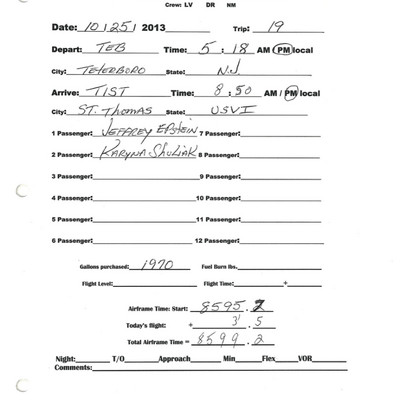 Crew: LV DR NM
Date: 10/25/2013 Trip: 19
Depart: TEB Time: 5:18 AM / PM local
City: TETERBORO State: N.J.
Arrive: TIST Time: 8:50 AM / PM local
City: ST. THOMAS State: USVI
1 Passenger: JEFFREY EPSTEIN 7 Passenger:
2 Passenger: KARYNA SHULIAK 8 Passenger:
3 Passenger: 9 Passenger:
4 Passenger: 10 Passenger:
5 Passenger: 11 Passenger:
6 Passenger: 12 Passenger:
Gallons purchased: 1970 Fuel Burn lbs.
Flight Level: Flight Time: +
Airframe Time: Start: 8595.2
Today's flight: + 3.5
Total Airframe Time = 8599.2
Night: T/O Approach Min Flex VOR
Comments: